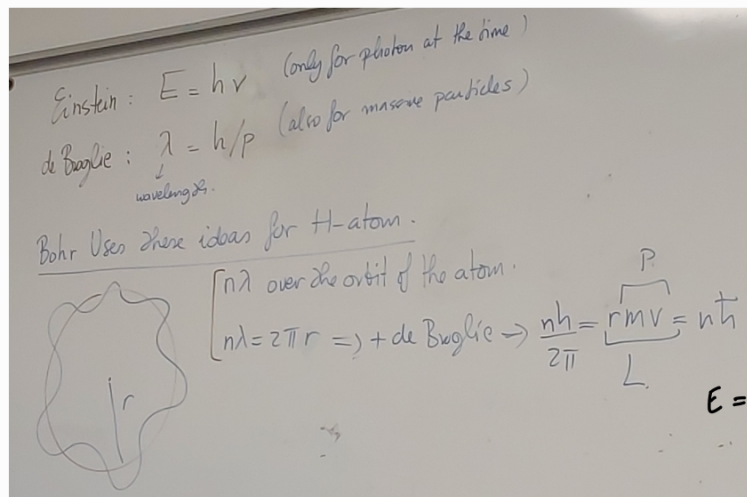 Einstein: E = hν (only for photon at the time)
de Broglie: λ = h/p (also for massive particles)
↓
wavelength.
Bohr Uses these ideas for H-atom.
[nλ over the orbit of the atom.
p.
nλ = 2πr => + de Broglie → nh/2π = rmv = nħ
L.
r
E =